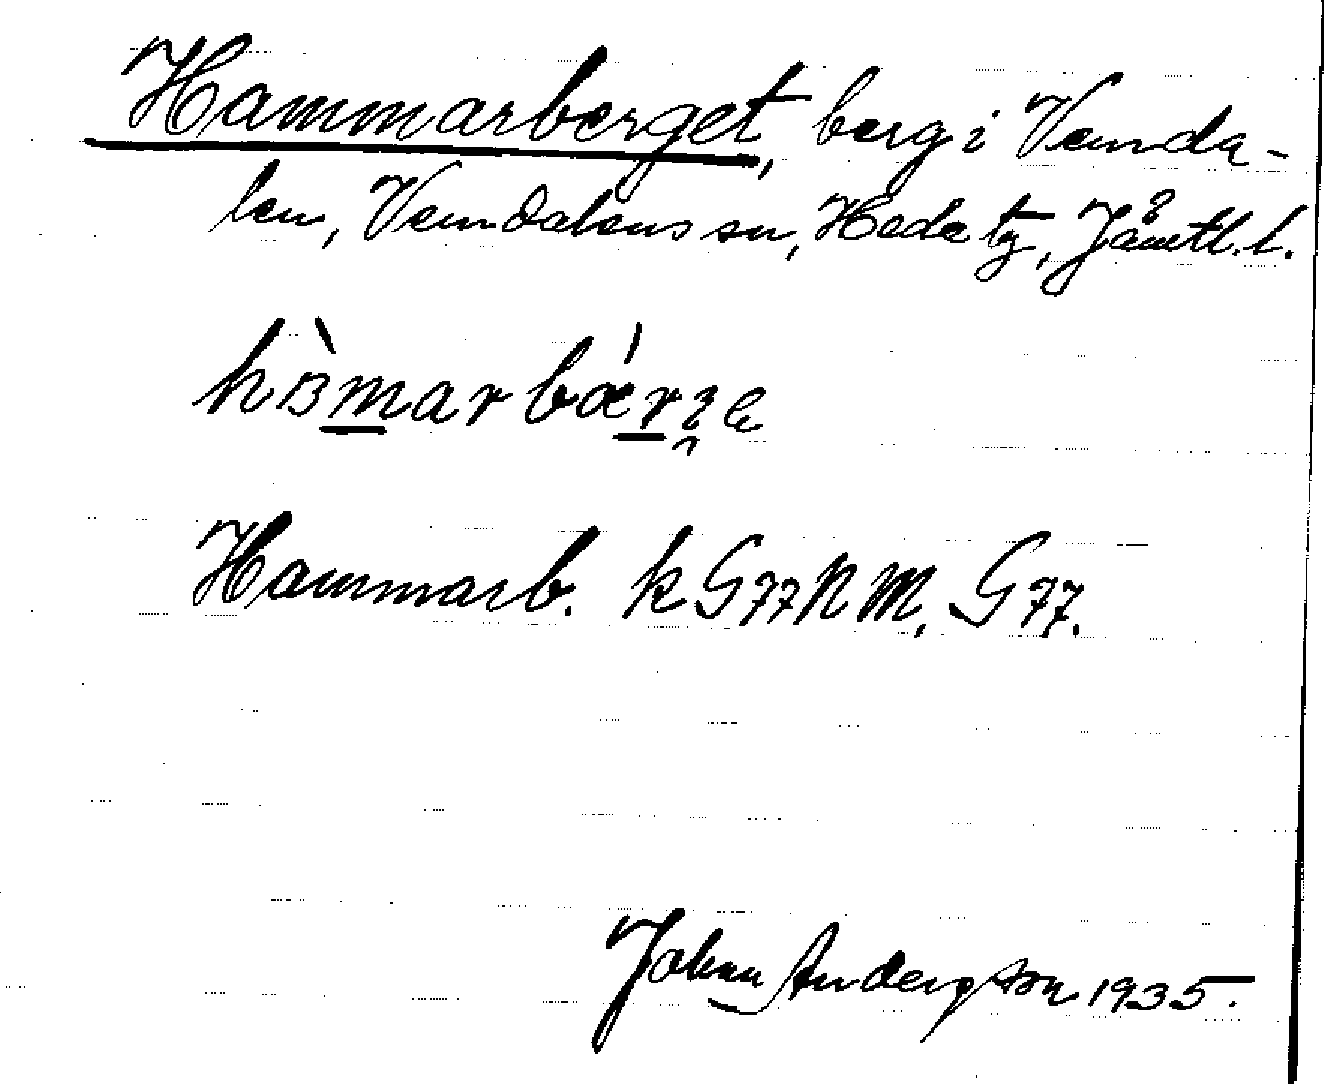 Hammarberget, berg i Vemda-
len, Vemdalens sn, Hede tg, Jämtl. l.
Hammarb. k G77 N M, G77.
Johan Anderson 1935.